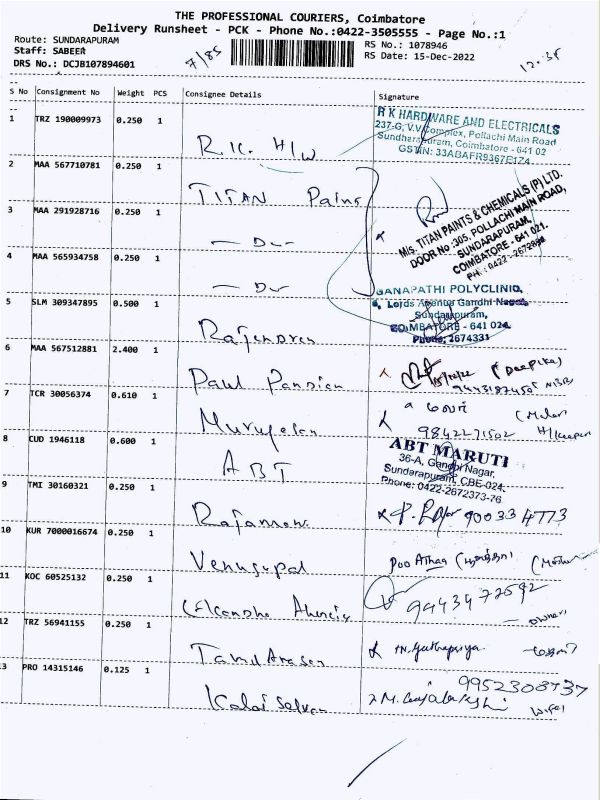 THE PROFESSIONAL COURIERS, Coimbatore
Delivery Runsheet - PCK - Phone No.:0422-3505555 - Page No.:1
Route: SUNDARAPURAM
RS No.: 1078946
Staff: SABEER
7/85
RS Date: 15-Dec-2022
DRS No.: DCJB107894601
12.35
S No Consignment No Weight PCS Consignee Details Signature
1 TRZ 190009973 0.250 1
R.K. H/W
R K HARDWARE AND ELECTRICALS
237-G, V.V.Complex, Pollachi Main Road
Sundharapuram, Coimbatore - 641 02
GSTIN: 33ABAFR9367E1Z4
2 MAA 567710781 0.250 1
TITAN Pains
M/s. TITAN PAINTS & CHEMICALS (P) LTD.
DOOR No :305, POLLACHI MAIN ROAD,
SUNDARAPURAM,
COIMBATORE - 641 021.
PH : 0422 -
3 MAA 291928716 0.250 1
— Do —
4 MAA 565934758 0.250 1
— Do —
5 SLM 309347895 0.500 1
Rajendren
GANAPATHI POLYCLINIC,
Lords Avenue Gandhi Nagar,
Sundarapuram,
COIMBATORE - 641 024.
Phone: 2674331
6 MAA 567512881 2.400 1
Paul Pandian
(Deepika)
7 TCR 30056374 0.610 1
Murugesan
மலர்
9842271502
8 CUD 1946118 0.600 1
ABT
ABT MARUTI
36-A, Gandhi Nagar,
Sundarapuram, CBE-024.
Phone: 0422-2672373-76
9 TMI 30160321 0.250 1
90033 4773
10 KUR 7000016674 0.250 1
Venugopal
11 KOC 60525132 0.250 1
9443477592
owner
12 TRZ 56941155 0.250 1
Tamil Arasan
13 PRO 14315146 0.125 1
Kalai Selvan
9952308737
wife